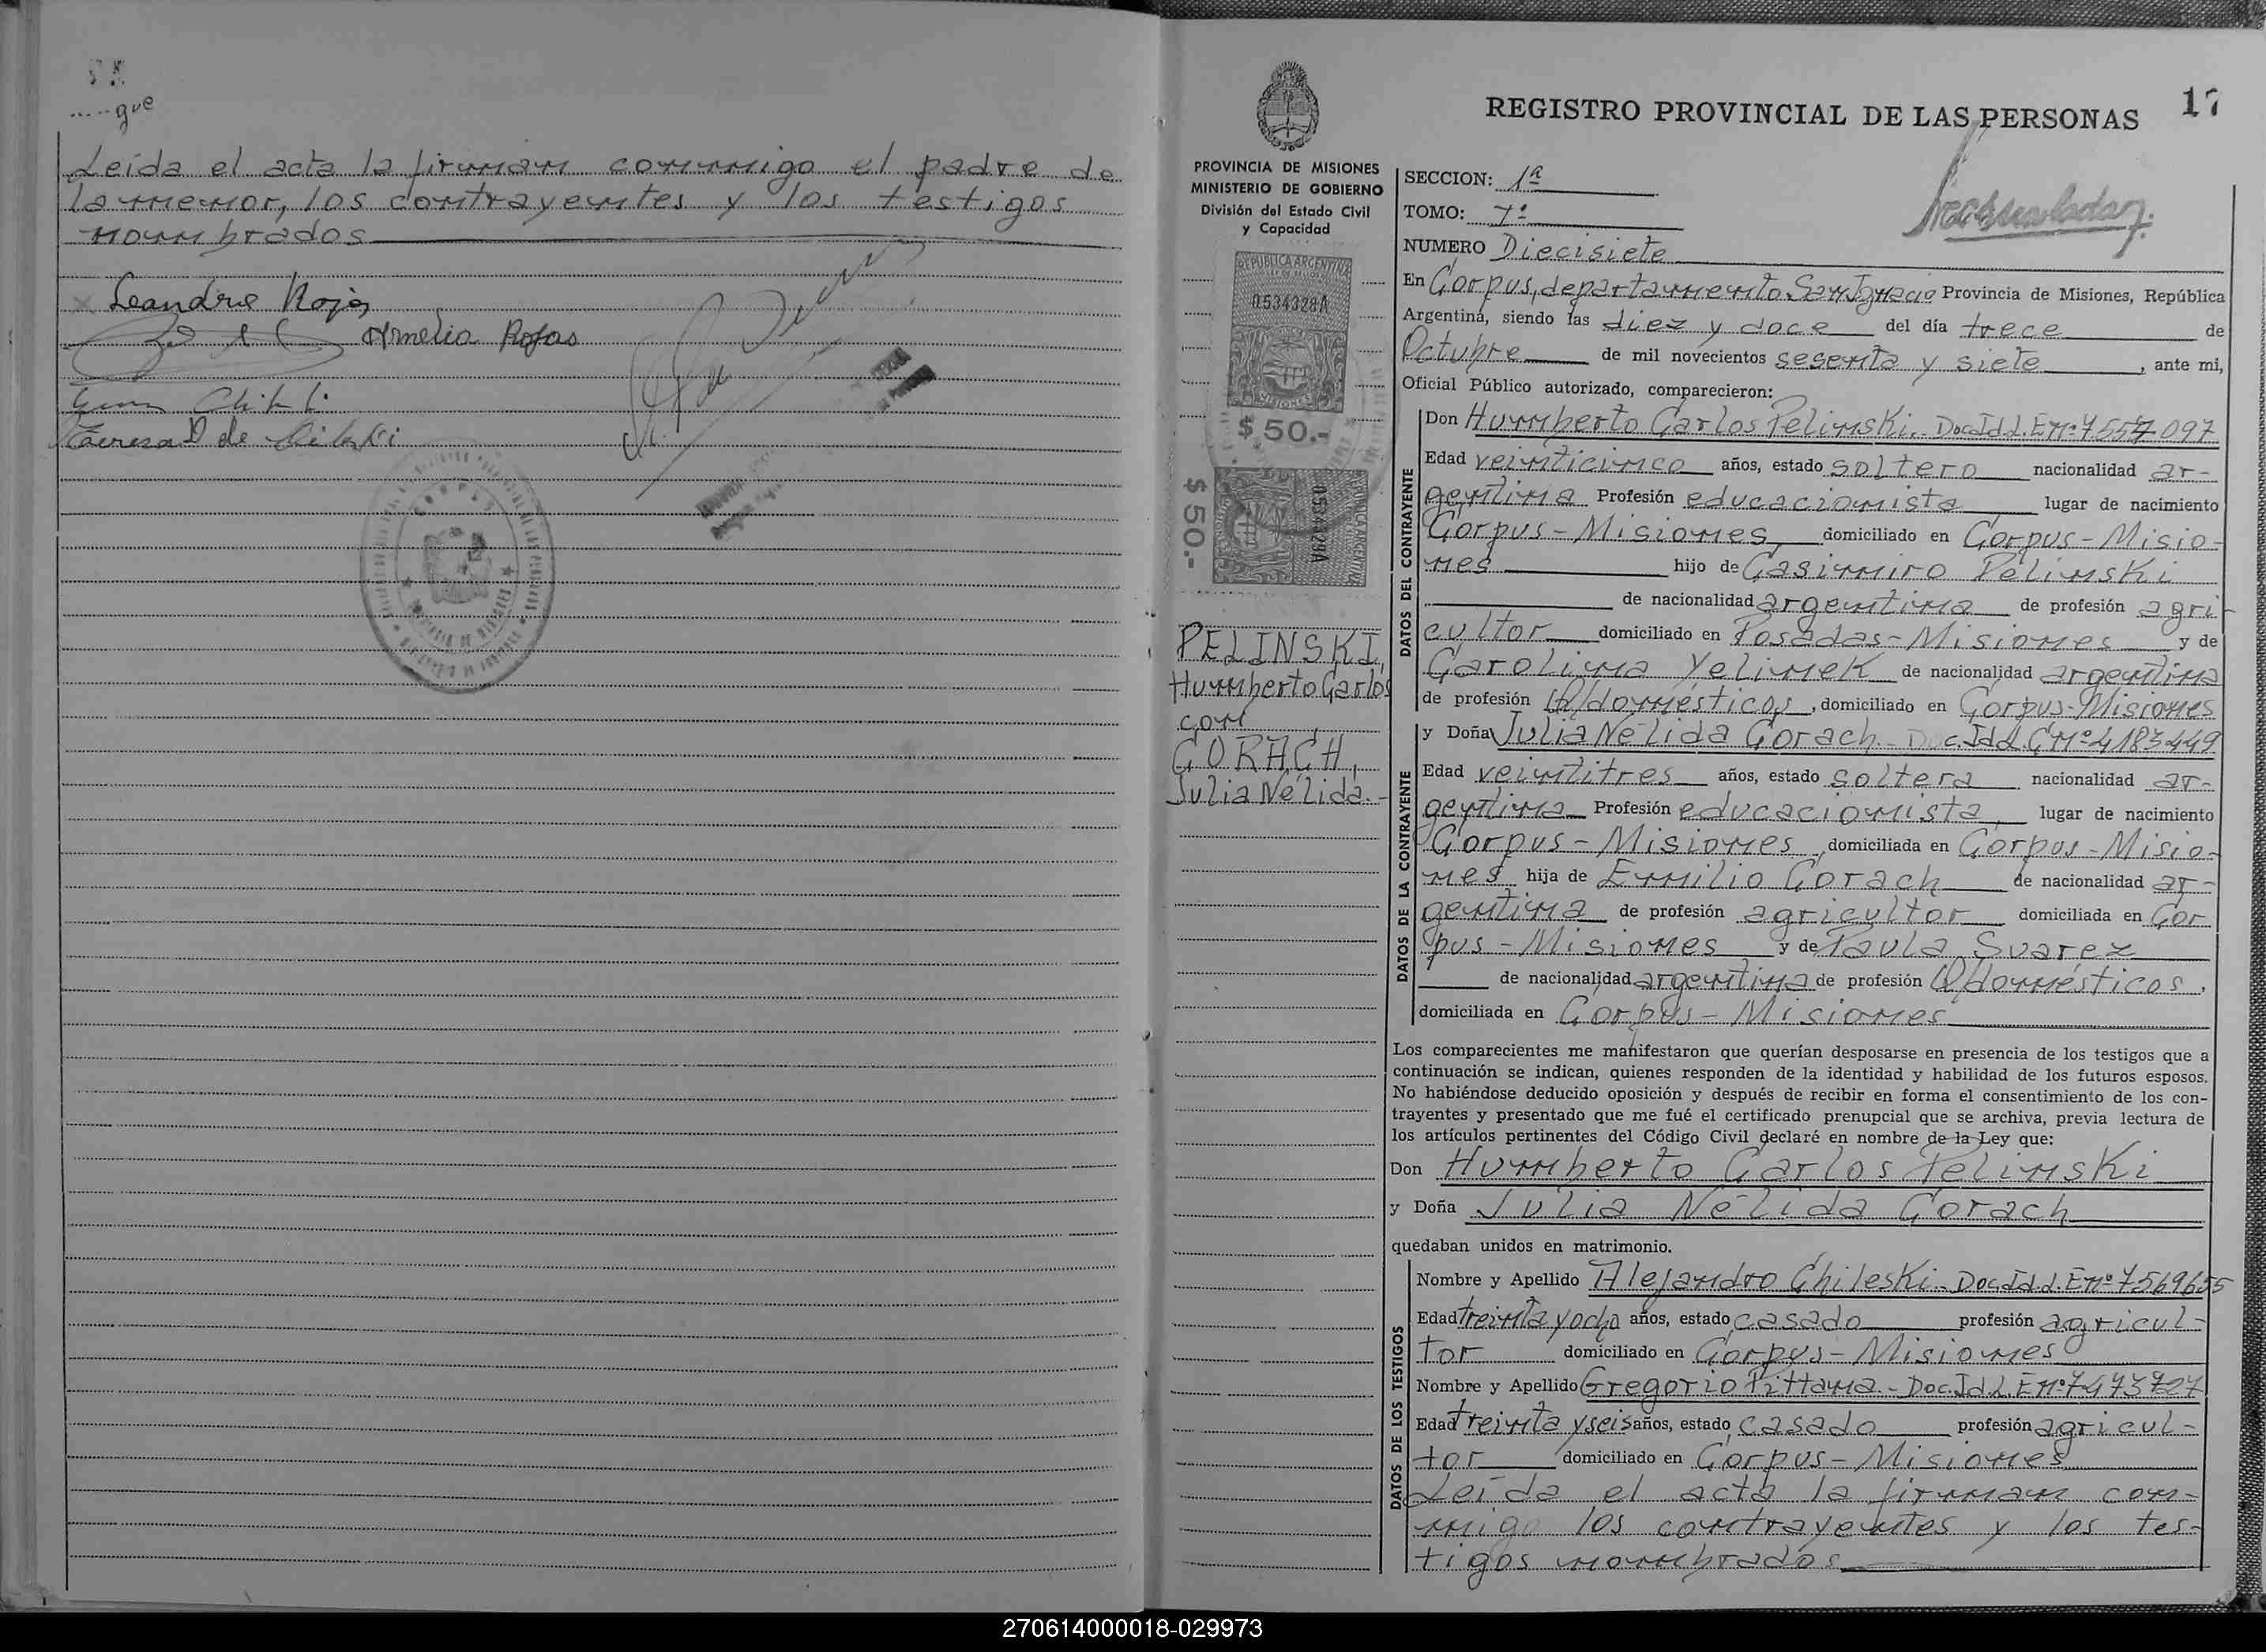 gue
Leida el acta la firman conmigo el padre de
la menor, los contrayentes y los testigos
nombrados
Leandro Rojas
Amelia Rojas
Teresa D de Chileski
17
REGISTRO PROVINCIAL DE LAS PERSONAS
PROVINCIA DE MISIONES
MINISTERIO DE GOBIERNO
División del Estado Civil
y Capacidad
REPUBLICA ARGENTINA
0534328A
MISIONES
$ 50.-
$ 50.-
0534329A
REPUBLICA ARGENTINA
PELINSKI,
Humberto Carlos
con
CORACH,
Julia Nélida.-
SECCION: 1ª
TOMO: 1º
NUMERO Diecisiete
En Corpus, departamento San Ignacio Provincia de Misiones, República
Argentina, siendo las diez y doce del día trece de
Octubre de mil novecientos sesenta y siete, ante mi,
Oficial Público autorizado, comparecieron:
DATOS DEL CONTRAYENTE
Don Humberto Carlos Pelinski. Doc.Id.L.E nº 7557097
Edad veinticinco años, estado soltero nacionalidad ar-
gentina Profesión educacionista, lugar de nacimiento
Corpus - Misiones, domiciliado en Corpus - Misio-
nes hijo de Casimiro Pelinski
de nacionalidad argentina de profesión agri-
cultor domiciliado en Posadas - Misiones y de
Carolina Yelinek de nacionalidad argentina
de profesión Q/domésticos, domiciliado en Corpus - Misiones
DATOS DE LA CONTRAYENTE
y Doña Julia Nélida Corach - Doc.Id.L.C nº 4183449
Edad veintitres años, estado soltera nacionalidad ar-
gentina Profesión educacionista, lugar de nacimiento
Corpus - Misiones, domiciliada en Corpus - Misio-
nes hija de Emilio Corach de nacionalidad ar-
gentina de profesión agricultor domiciliada en Cor
pus - Misiones y de Paula Suarez
de nacionalidad argentina de profesión Q/domésticos,
domiciliada en Corpus - Misiones
Los comparecientes me manifestaron que querían desposarse en presencia de los testigos que a
continuación se indican, quienes responden de la identidad y habilidad de los futuros esposos.
No habiéndose deducido oposición y después de recibir en forma el consentimiento de los con-
trayentes y presentado que me fué el certificado prenupcial que se archiva, previa lectura de
los artículos pertinentes del Código Civil declaré en nombre de la Ley que:
Don Humberto Carlos Pelinski
y Doña Julia Nélida Corach
quedaban unidos en matrimonio.
DATOS DE LOS TESTIGOS
Nombre y Apellido Alejandro Chileski - Doc.Id.L.E nº 7569655
Edad treinta y ocho años, estado casado profesión agricul-
tor domiciliado en Corpus - Misiones
Nombre y Apellido Gregorio Pittana - Doc.Id.L.E nº 7473727
Edad treinta y seis años, estado casado profesión agricul-
tor domiciliado en Corpus - Misiones
Leida el acta la firman con-
migo los contrayentes y los tes-
tigos nombrados
270614000018-029973